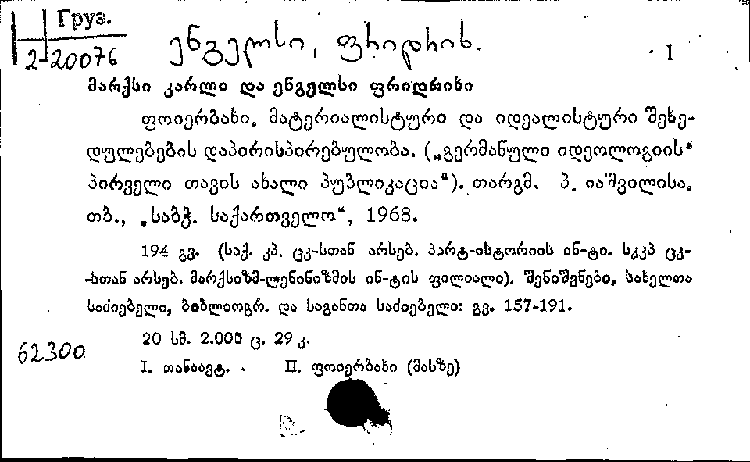 Груз.
2-20076
ენგელსი, ფრიდრიხ.
I
მარქსი კარლი და ენგელსი ფრიდრიხი
ფოიერბახი. მატერიალისტური და იდეალისტური შეხე-
დულებების დაპირისპირებულობა. („გერმანული იდეოლოგიის“
პირველი თავის ახალი პუბლიკაცია“). თარგმ. პ. იაშვილისა.
თბ., „საბჭ. საქართველო“, 1968.
194 გვ. (საქ. კპ. ცკ-სთან არსებ. პარტ-ისტორიის ინ-ტი. სკკპ ცკ-
-სთან არსებ. მარქსიზმ-ლენინიზმის ინ-ტის ფილიალი). შენიშვნები, სახელთა
საძიებელი, ბიბლიოგრ. და საგანთა საძიებელი: გვ. 157-191.
20 სმ. 2.000 ც. 29 კ.
62300
I. თანაავტ. II. ფოიერბახი (მასზე)